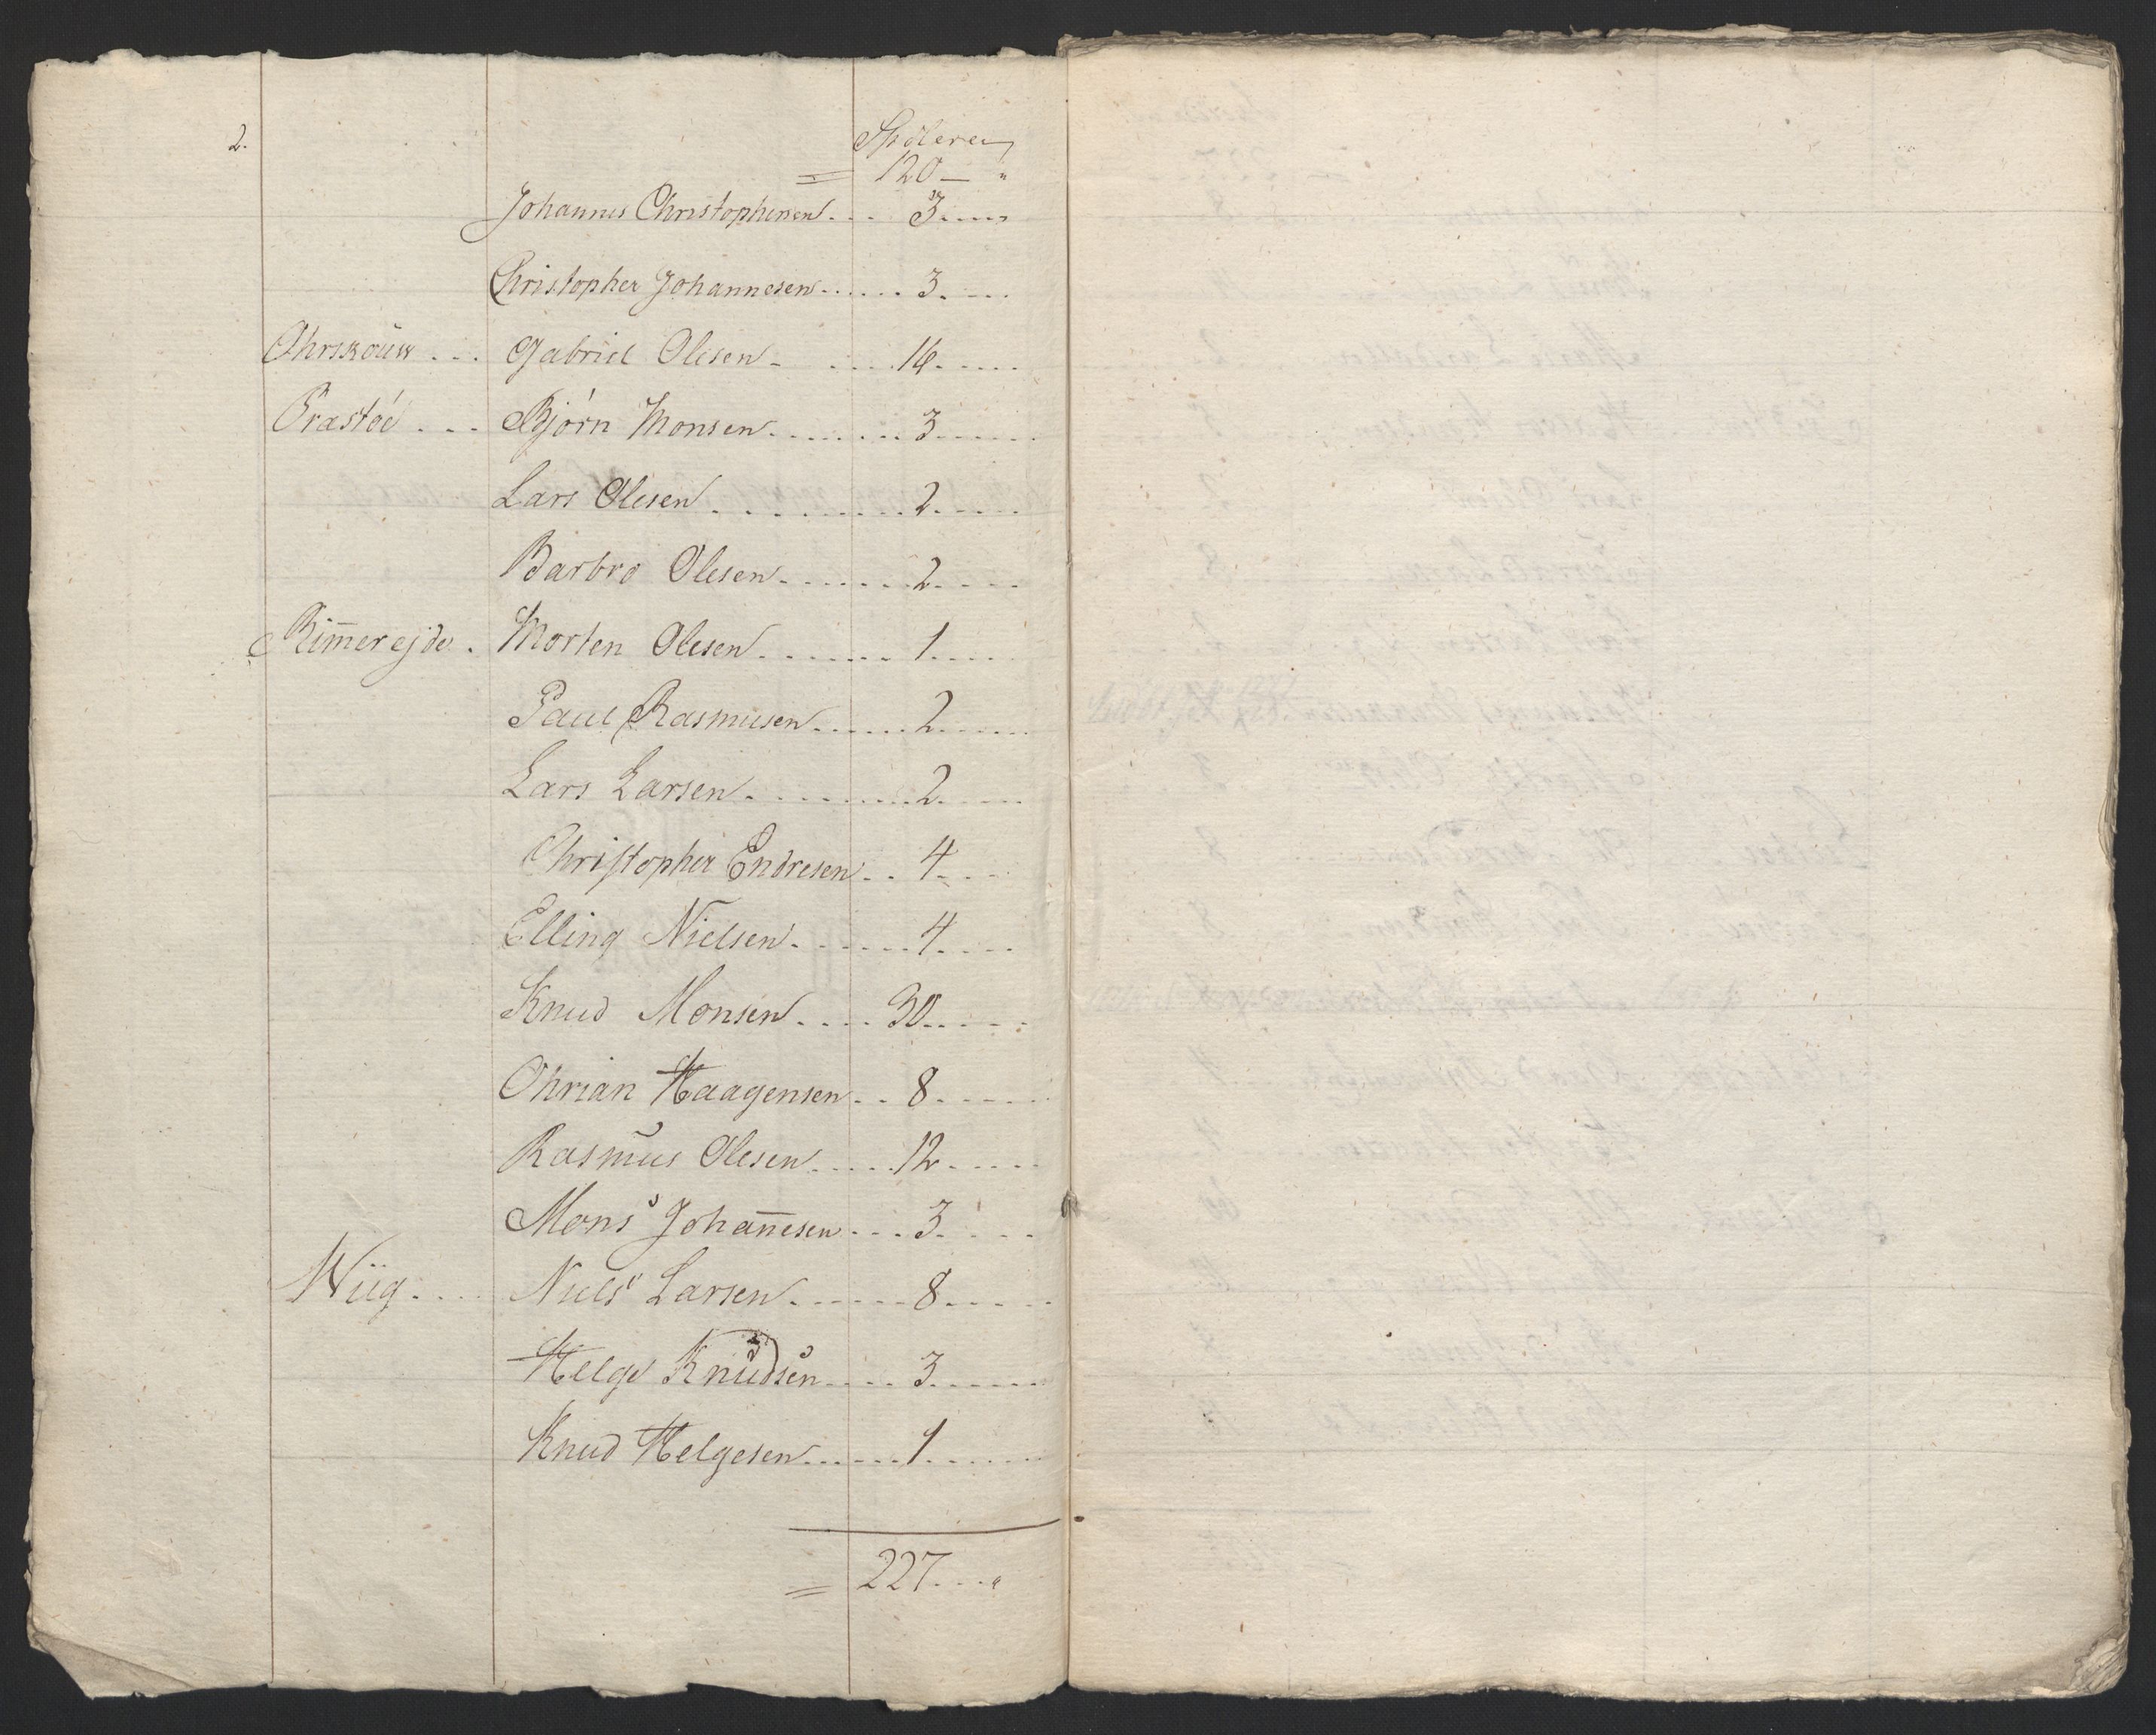 2.
Spölere
= 120 — "
Johannes Christophersen . . . 3 . . . . "
Christopher Johannesen . . . . . . 3 . . . .
Ohrskouw . . . Gabriel Olesen - . . . . 16 . . . . .
Præstöe . . . Björn Monsen . . . . . . . . 3 . . . . .
Lars Olesen . . . . . . . . . 2 . . . . .
Barbro Olesen . . . . . . . . 2 . . . .
Rim̅erejde . Morten Olesen . . . . . . . . 1 . . . .
Paul Rasmusen . . . . . . 2 . . . . .
Lars Larsen . . . . . . . . . 2 . . . .
Christopher Endresen . . 4 . . . .
Elling Nielsen . . . . . . . 4 . . . .
Knud Monsen . . . . 30 . . . . .
Chrian Haagensen . . 8 . . . . .
Rasmus Olesen . . . . . 12 . . . . .
Mons Johan̅esen . . . 3 . . . .
Wiig . . . . Niels Larsen . . . . . . 8 . . . . .
Helge Knudsen . . . . 3 . . . . . .
Knud Helgesen . . . . . . 1 . . . . . .
= 227 . . . "